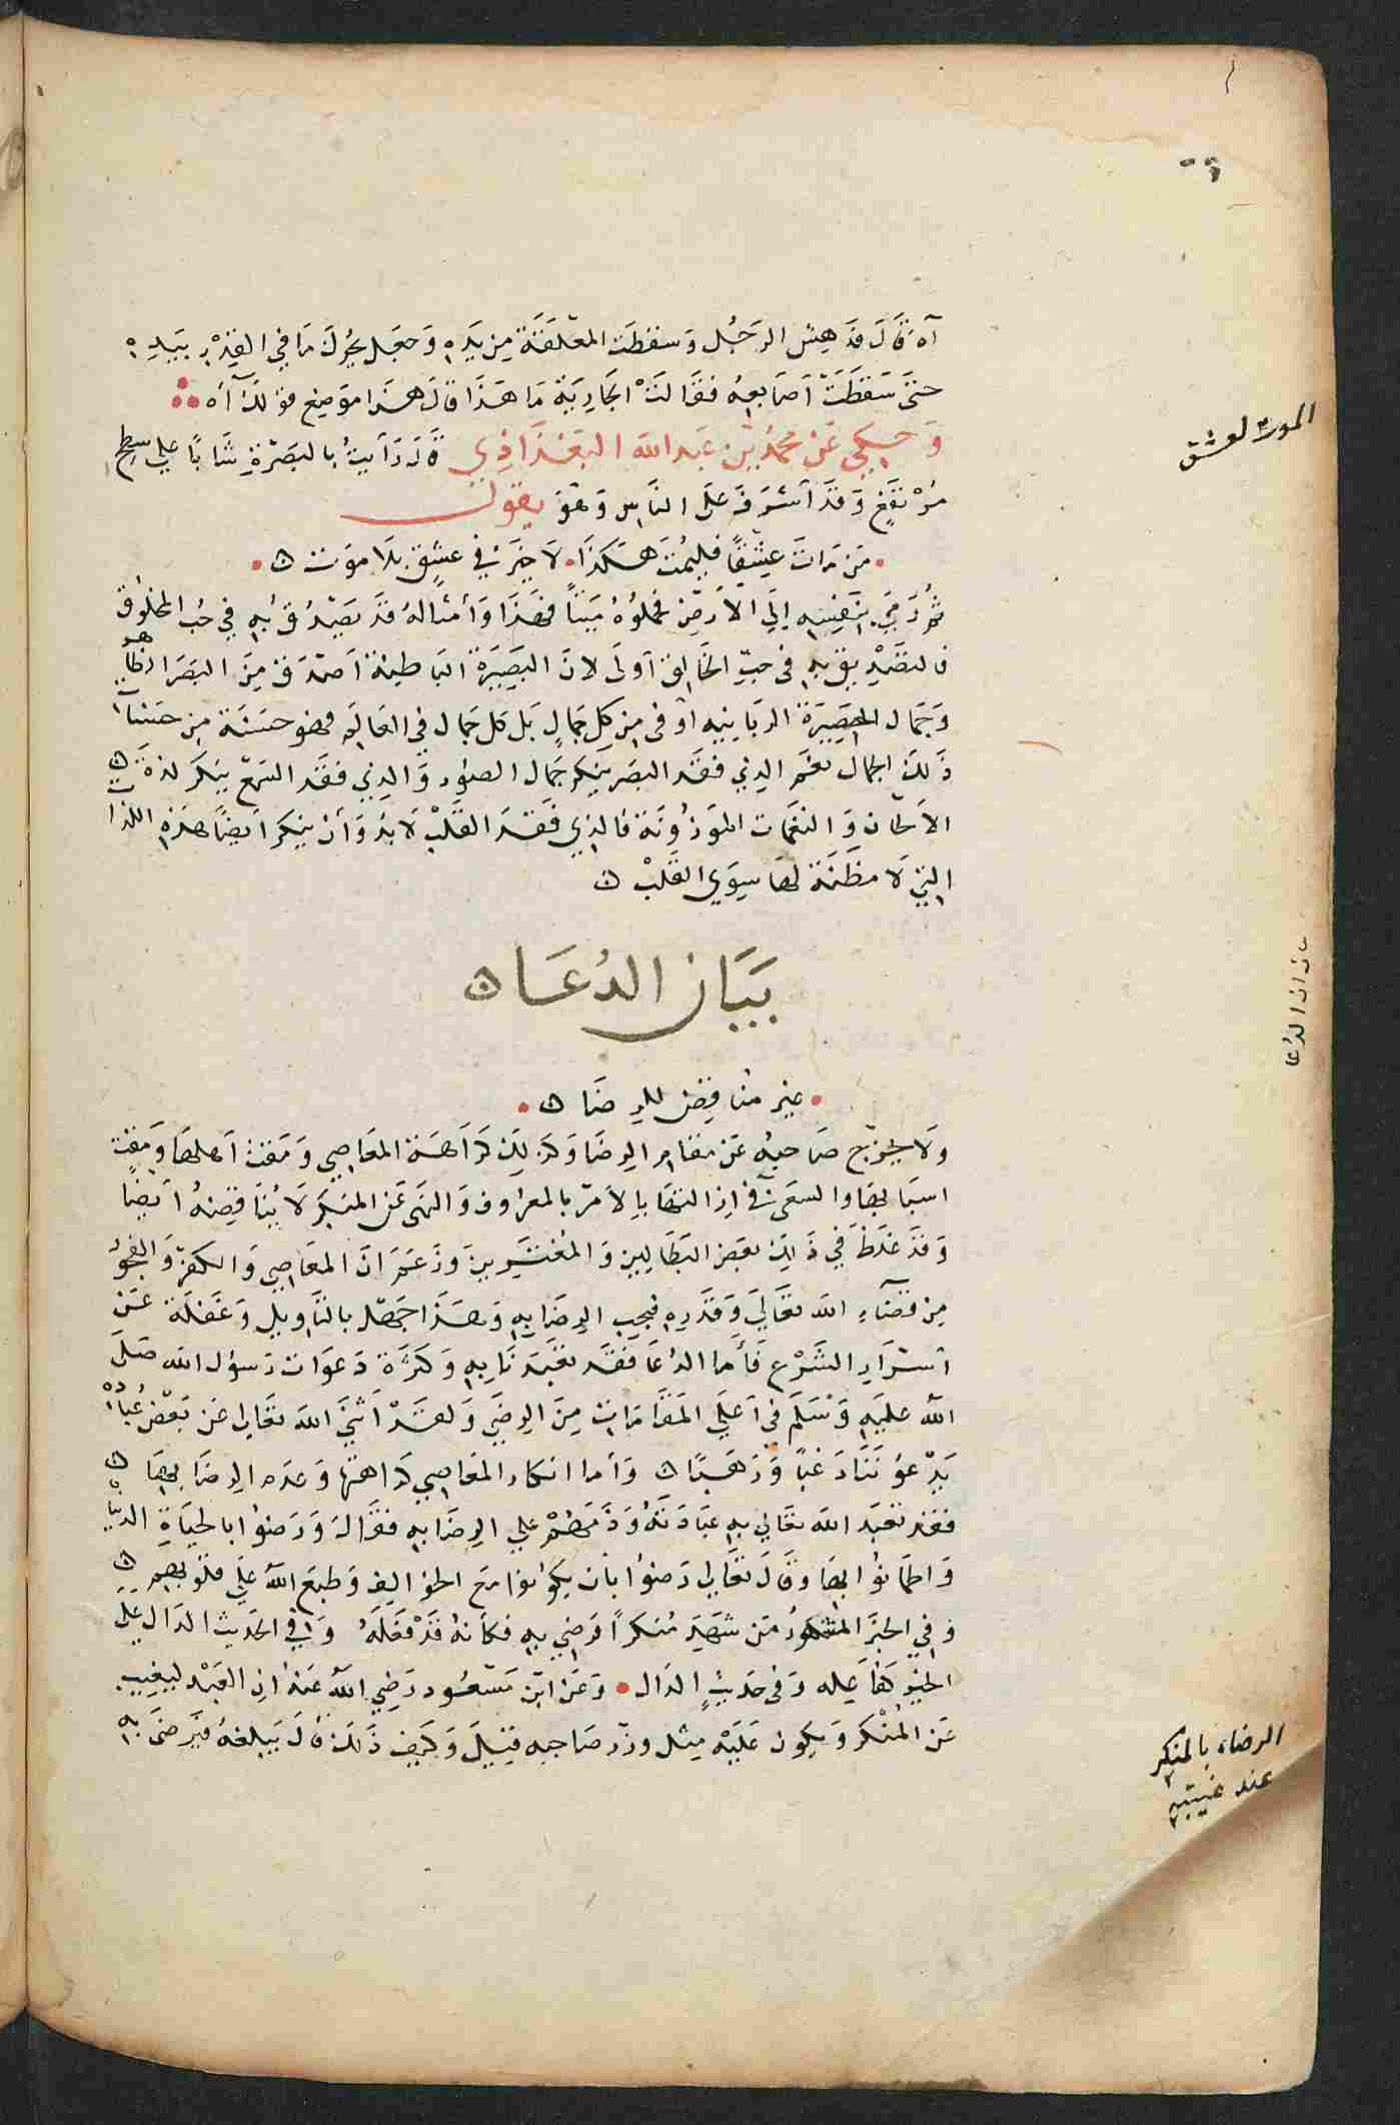 آه قال فدهش الرجل وسقطت الملعقة من يده وجعل يحرك ما في القدر بيده
حتى سقطت أصابعه فقالت الجارية ما هذا قال هذا موضع قولك آه
وحكي عن محمد بن عبد الله البغداذي قال رأيت بالبصرة شابا على سطح
مرتفع وقد أشرف على الناس وهو يقول
من مات عشقا فليمت هكذا لا خير في عشق بلا موت
ثم رمى بنفسه إلى الأرض فحملوه ميتا فهذا وأمثاله قد يصدق به في حب المخلوق
فالتصديق به في حب الخالق أولى لان البصيرة الباطنة أصدق من البصر الظاهر
وجمال الحضرة الربانية أوفى من كل جمال بل كل جمال في العالم فهو حسنة من حسنات
ذلك الجمال نعم الذي فقد البصر ينكر جمال الصور والذي فقد السمع ينكر لذة
الألحان والنغمات الموزونة فالذي فقد القلب لا بد وأن ينكر أيضا هذه اللذات
التي لا مظنة لها سوى القلب
بيان الدعا
غير مناقض للرضا
ولا يخرج صاحبه عن مقام الرضا وكذلك كراهة المعاصي ومقت أهلها ومقت
اسبابها والسعي في ازالتها بالأمر بالمعروف والنهي عن المنكر لا يناقضه أيضا
وقد غلط في ذلك بعض البطالين والمغترين وزعم ان المعاصي والكفر والفجور
من قضآء الله تعالى وقدره فيجب الرضا به وهذا جهل بالتاويل وغفلة عن
اسرار الشرع فأما الدعا فقد تعبدنا به وكثرة دعوات رسول الله صلى
الله عليه وسلم في أعلى المقامات من الرضى ولقد أثنى الله تعالى عن بعض عباده
يدعوننا رغبا ورهبا وأما انكار المعاصي كراهتها وعدم الرضا بها
فقد تعبد الله تعالى به عبادته وذمهم على الرضا به فقال ورضوا بالحياة الدنيا
واطمانوا بها وقال تعالى رضوا بان يكونوا مع الخوالف وطبع الله على قلوبهم
وفي الخبر المشهور من شهد منكرا فرضي به فكأنه قد فعله وفي الحديث الدال على
الخير كفاعله وفي حديث الدال وعن ابن مسعود رضي الله عنه ان العبد ليغيب
عن المنكر ويكون عليه مثل وزر صاحبه قيل وكيف ذلك قال يبلغه فيرضى به
الموت لعشق
الرضاء بالمنكر
عند غيبته